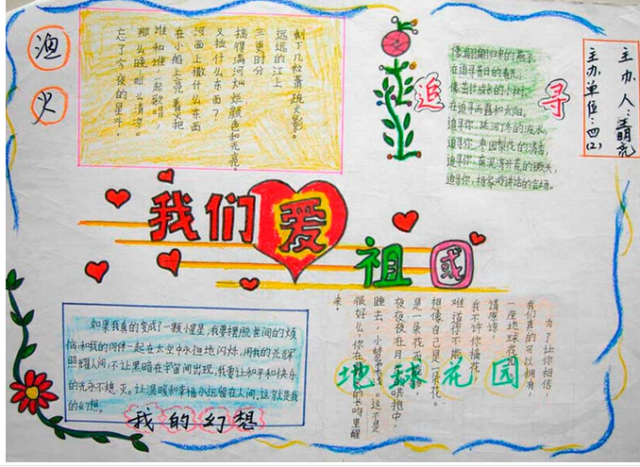 渔
火
剩下几粒萧疏的影。
远远的江上
三更时分
搞得满河灿烂颜色和光亮。
又拉什么东西？
河面上撒什么东西
在小船上亮着火把
谁和谁一起歌唱，
那么晚那么清凉。
忘了今夜的星斗。
追
寻
在追寻昔日的春光；
像茁壮成长的小树，
在追寻雨露和太阳。
追寻你，延河叮咚的流水
追寻你，枣园梨花的清香
追寻你，南泥湾开荒的镢头，
追寻你，杨家岭讲话的会场
主办人：
主办单位：四(2)
我们爱
祖国
如果我真的变成了一颗小星星，我要摆脱世间的烦
恼，和我的同伴一起在太空中永恒地闪烁，用我的光辉
照耀人间，不让黑暗在宇宙间出现，我要让和平和快乐
的光永不熄灭。让温暖和幸福永远留在人间，这就是我
的幻想。
我的幻想
为了让你相信，
我们真的可以拥有，
一座地球花
请原谅，
我不许你摘花。
难道你不
想像自己是一朵花。
是一朵花
夜夜夜在月
睡去，
很好么，你在
来。
地球花园